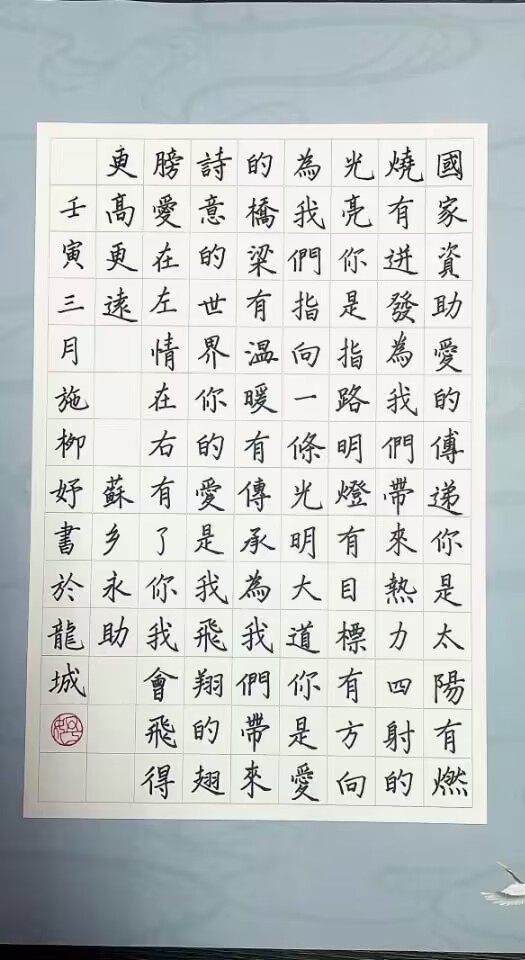 國家資助愛的傳遞你是太陽有燃
燒有迸發為我們帶來熱力四射的
光亮你是指路明燈有目標有方向
為我們指向一條光明大道你是愛
的橋梁有溫暖有傳承為我們帶來
詩意的世界你的愛是我飛翔的翅
膀愛在左情在右有了你我會飛得
更高更遠 蘇乡永助
壬寅三月施柳妤書於龍城